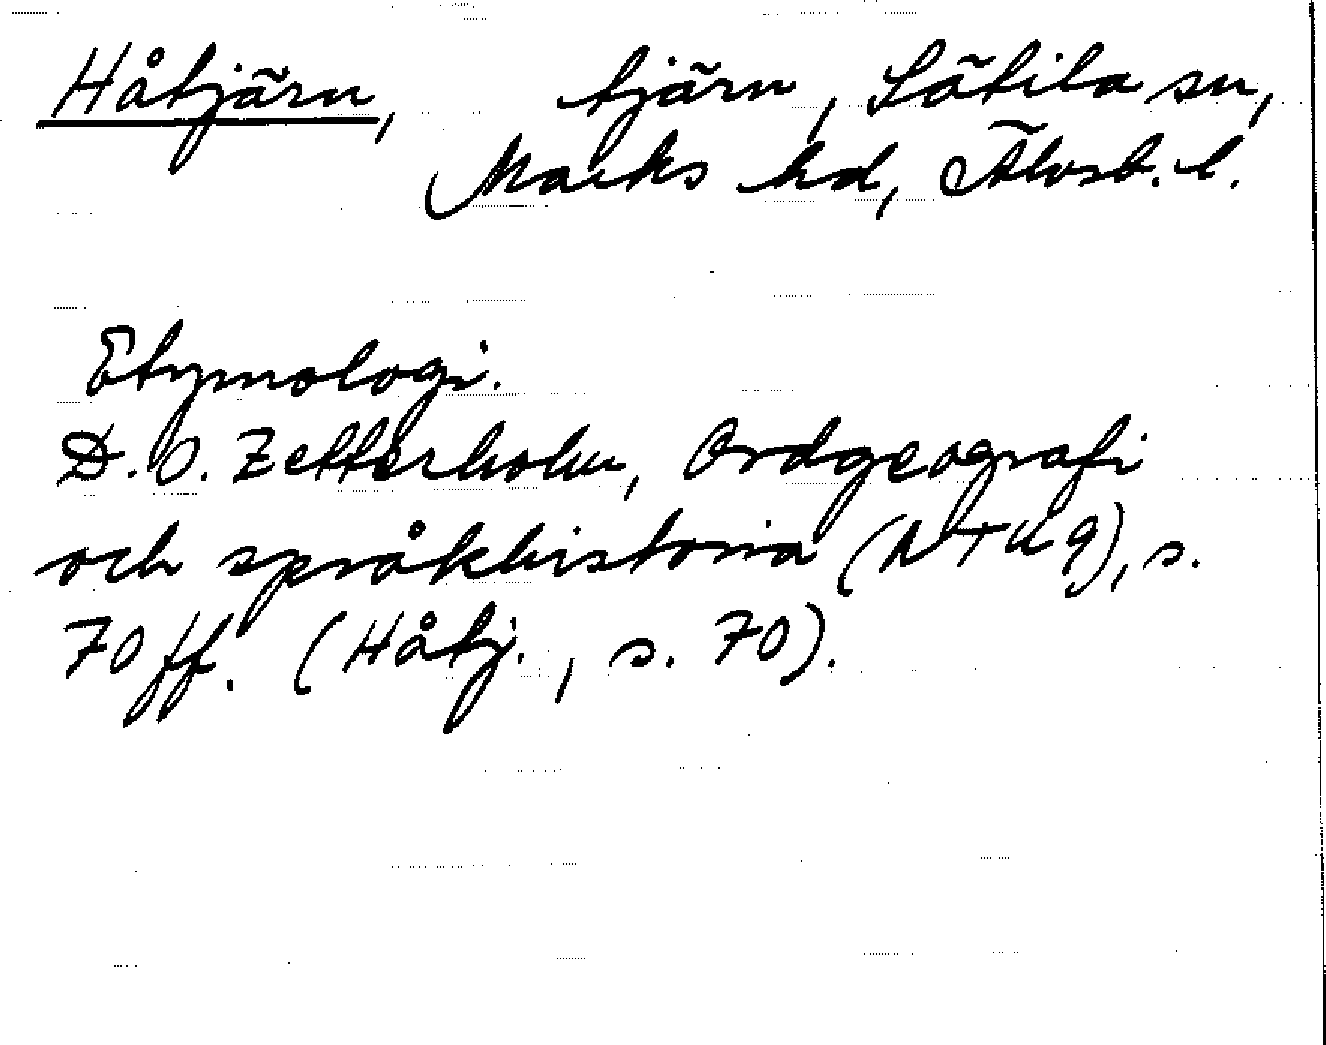 Håtjärn, tjärn, Sätila sn,
Marks hd, Älvsb. l.
Etymologi.
D. O. Zetterholm, Ordgeografi
och språkhistoria (NTU 9), s.
70 ff. (Håtj., s. 70).